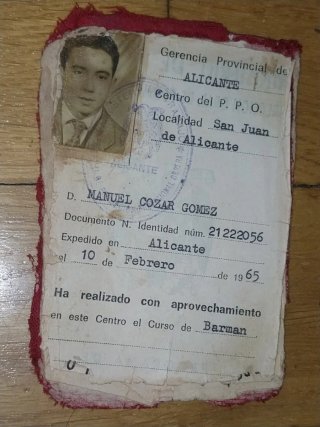 Gerencia Provincial de
ALICANTE
Centro del P. P. O.
Localidad San Juan
de Alicante
ALICANTE
D. MANUEL COZAR GOMEZ
Documento N. Identidad núm. 21222056
Expedido en Alicante
el 10 de Febrero de 1965
Ha realizado con aprovechamiento
en este Centro el Curso de Barman